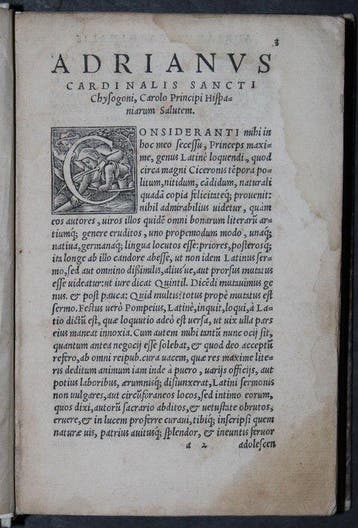 3
ADRIANVS
CARDINALIS SANCTI
Chysogoni, Carolo Principi Hispa-
niarum Salutem.
CONSIDERANTI mihi in
hoc meo secessu, Princeps maxi-
me, genus Latinè loquendi, quod
circa magni Ciceronis tẽpora po-
litum, nitidum, cãdidum, naturali
quadã copia felicitateq; prouenit:
nihil admirabilius uidetur, quàm
eos autores, uiros illos quidẽ omni bonarum literarũ ar-
tiumq; genere eruditos, uno propemodum modo, unaq;
natiua, germanaq; lingua locutos esse: priores, posterosq;
ita longe ab illo candore abesse, ut non idem Latinus ser-
mo, sed aut omnino dißimilis, alius ue, aut prorsus mutatus
esse uideatur: ut iure dicat Quintil. Dicẽdi mutauimus ge-
nus. & post pauca: Quid multis? totus propè mutatus est
sermo. Festus uerò Pompeius, Latinè, inquit, loqui, à La-
tio dictũ est, quæ loquutio adeò est uersa, ut uix ulla pars
eius maneat innoxia. Cum autem mihi tantũ nunc ocij sit,
quantum antea negocij esse solebat, & quod deo acceptũ
refero, ab omni reipub. cura uacem, quæ res maxime lite-
ris deditum animum iam inde à puero, uarijs officijs, aut
potius laboribus, ærumnisq; disiunxerat, Latini sermonis
non uulgares, aut circũforaneos locos, sed intimo eorum,
quos dixi, autorũ sacrario abditos, & uetustate obrutos,
eruere, & in lucem proferre curaui, tibiq; inscripsi quem
naturæ uis, patrius auitusq; splendor, & ineuntis feruor
a 2 adolescen